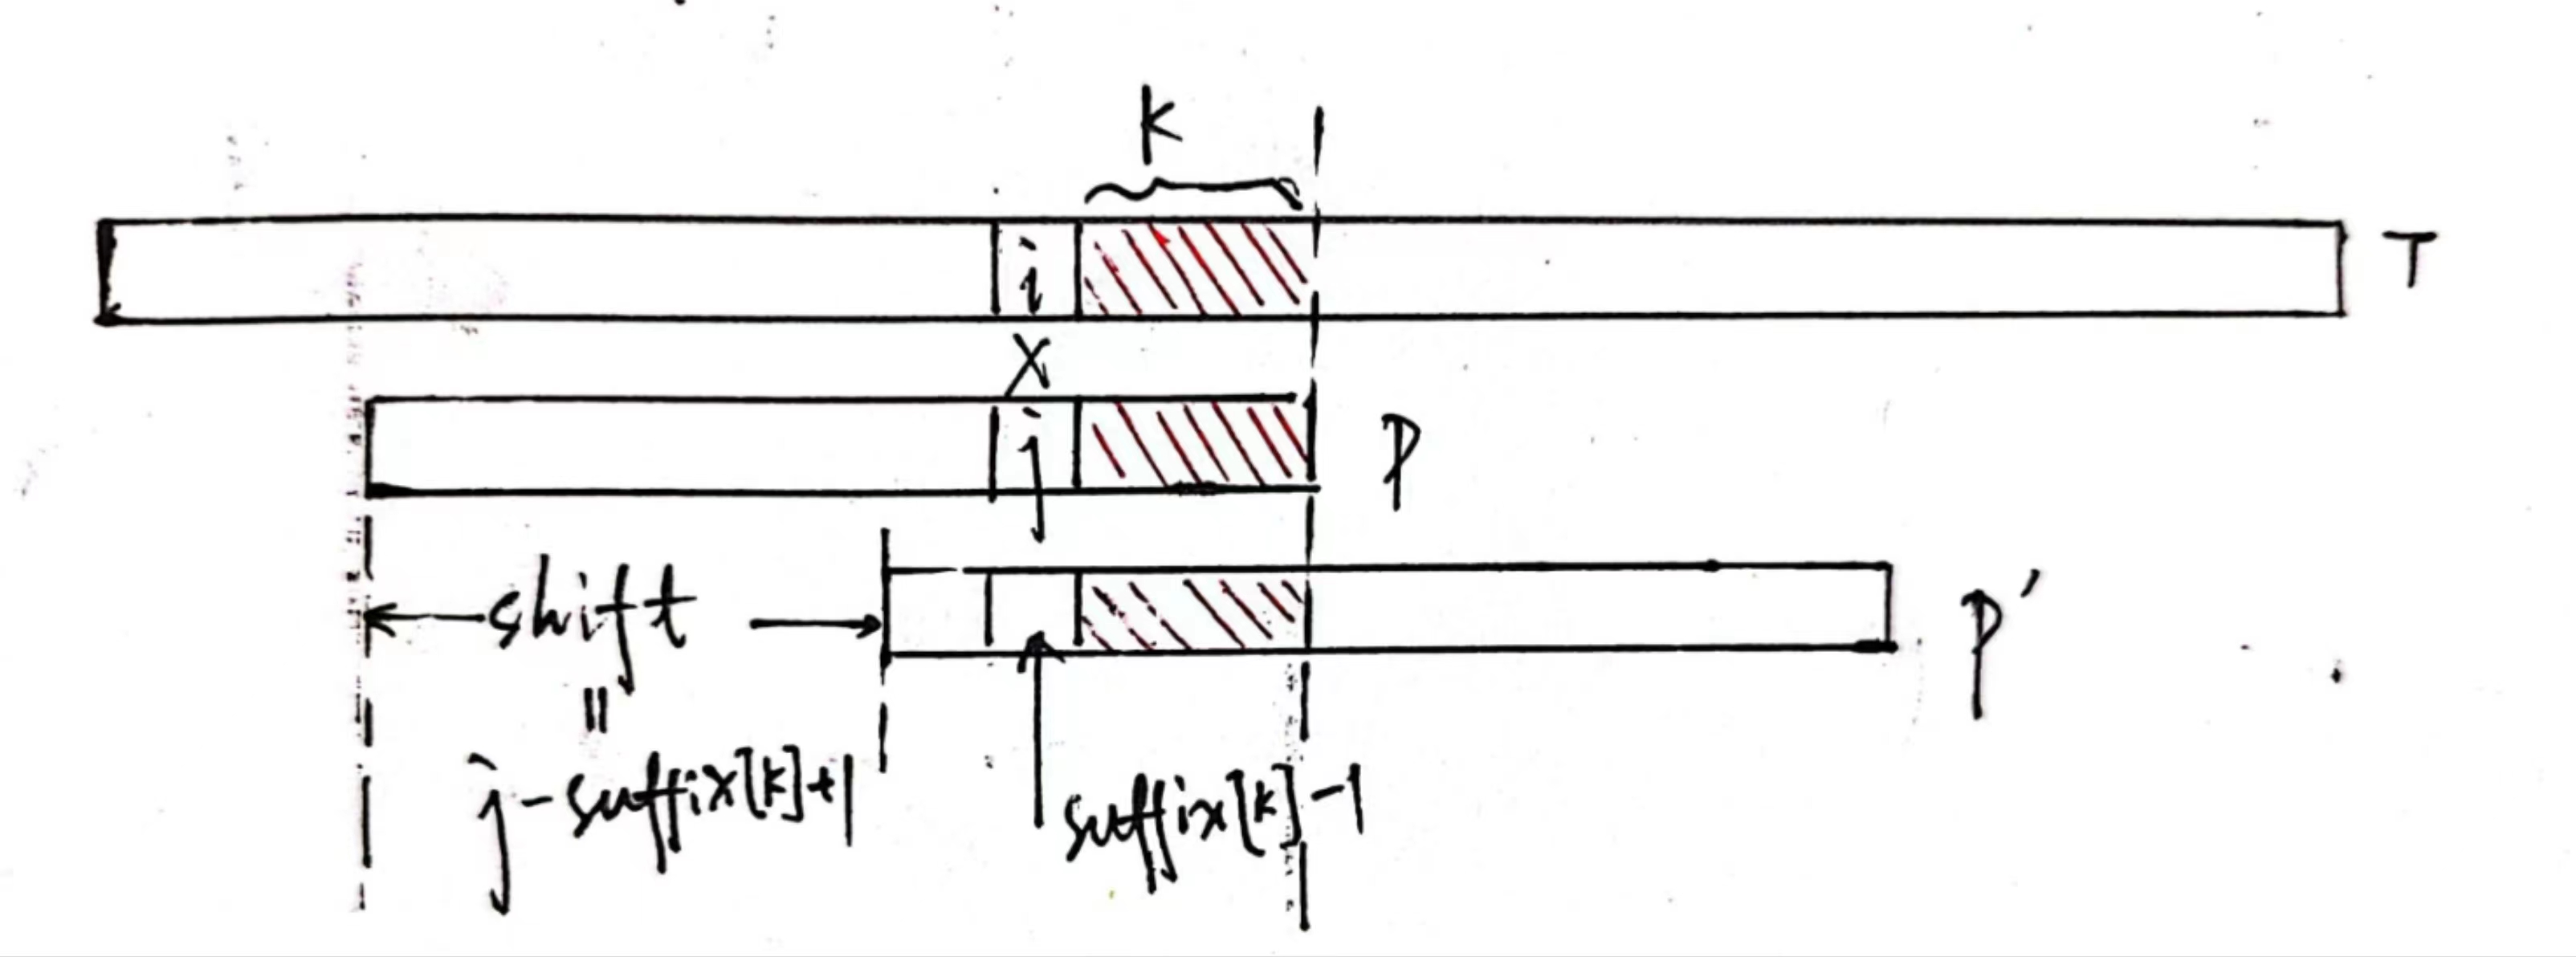 K
i T
X
j P
shift P'
=
j-suffix[k]+1 suffix[k]-1